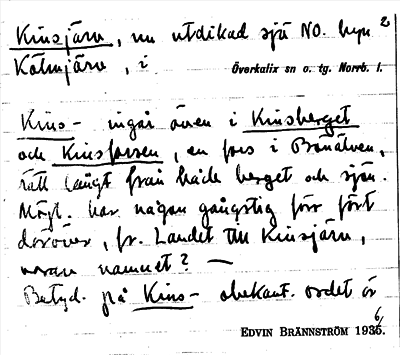 Kinsjärv, nu utdikad sjö NO. byn 2
Kölmjärv, i Överkalix sn o. tg. Norrb. l.
Kins- ingår även i Kinsberget
och Kinsforsen, en fors i Bönälven,
rätt långt från både berget och sjön.
Möjl. har någon gångstig förr fört
däröver, fr. Landet till Kinsjärv,
varav namnet? —
Betyd. på Kins- obekant. ordet är
EDVIN BRÄNNSTRÖM 1936.